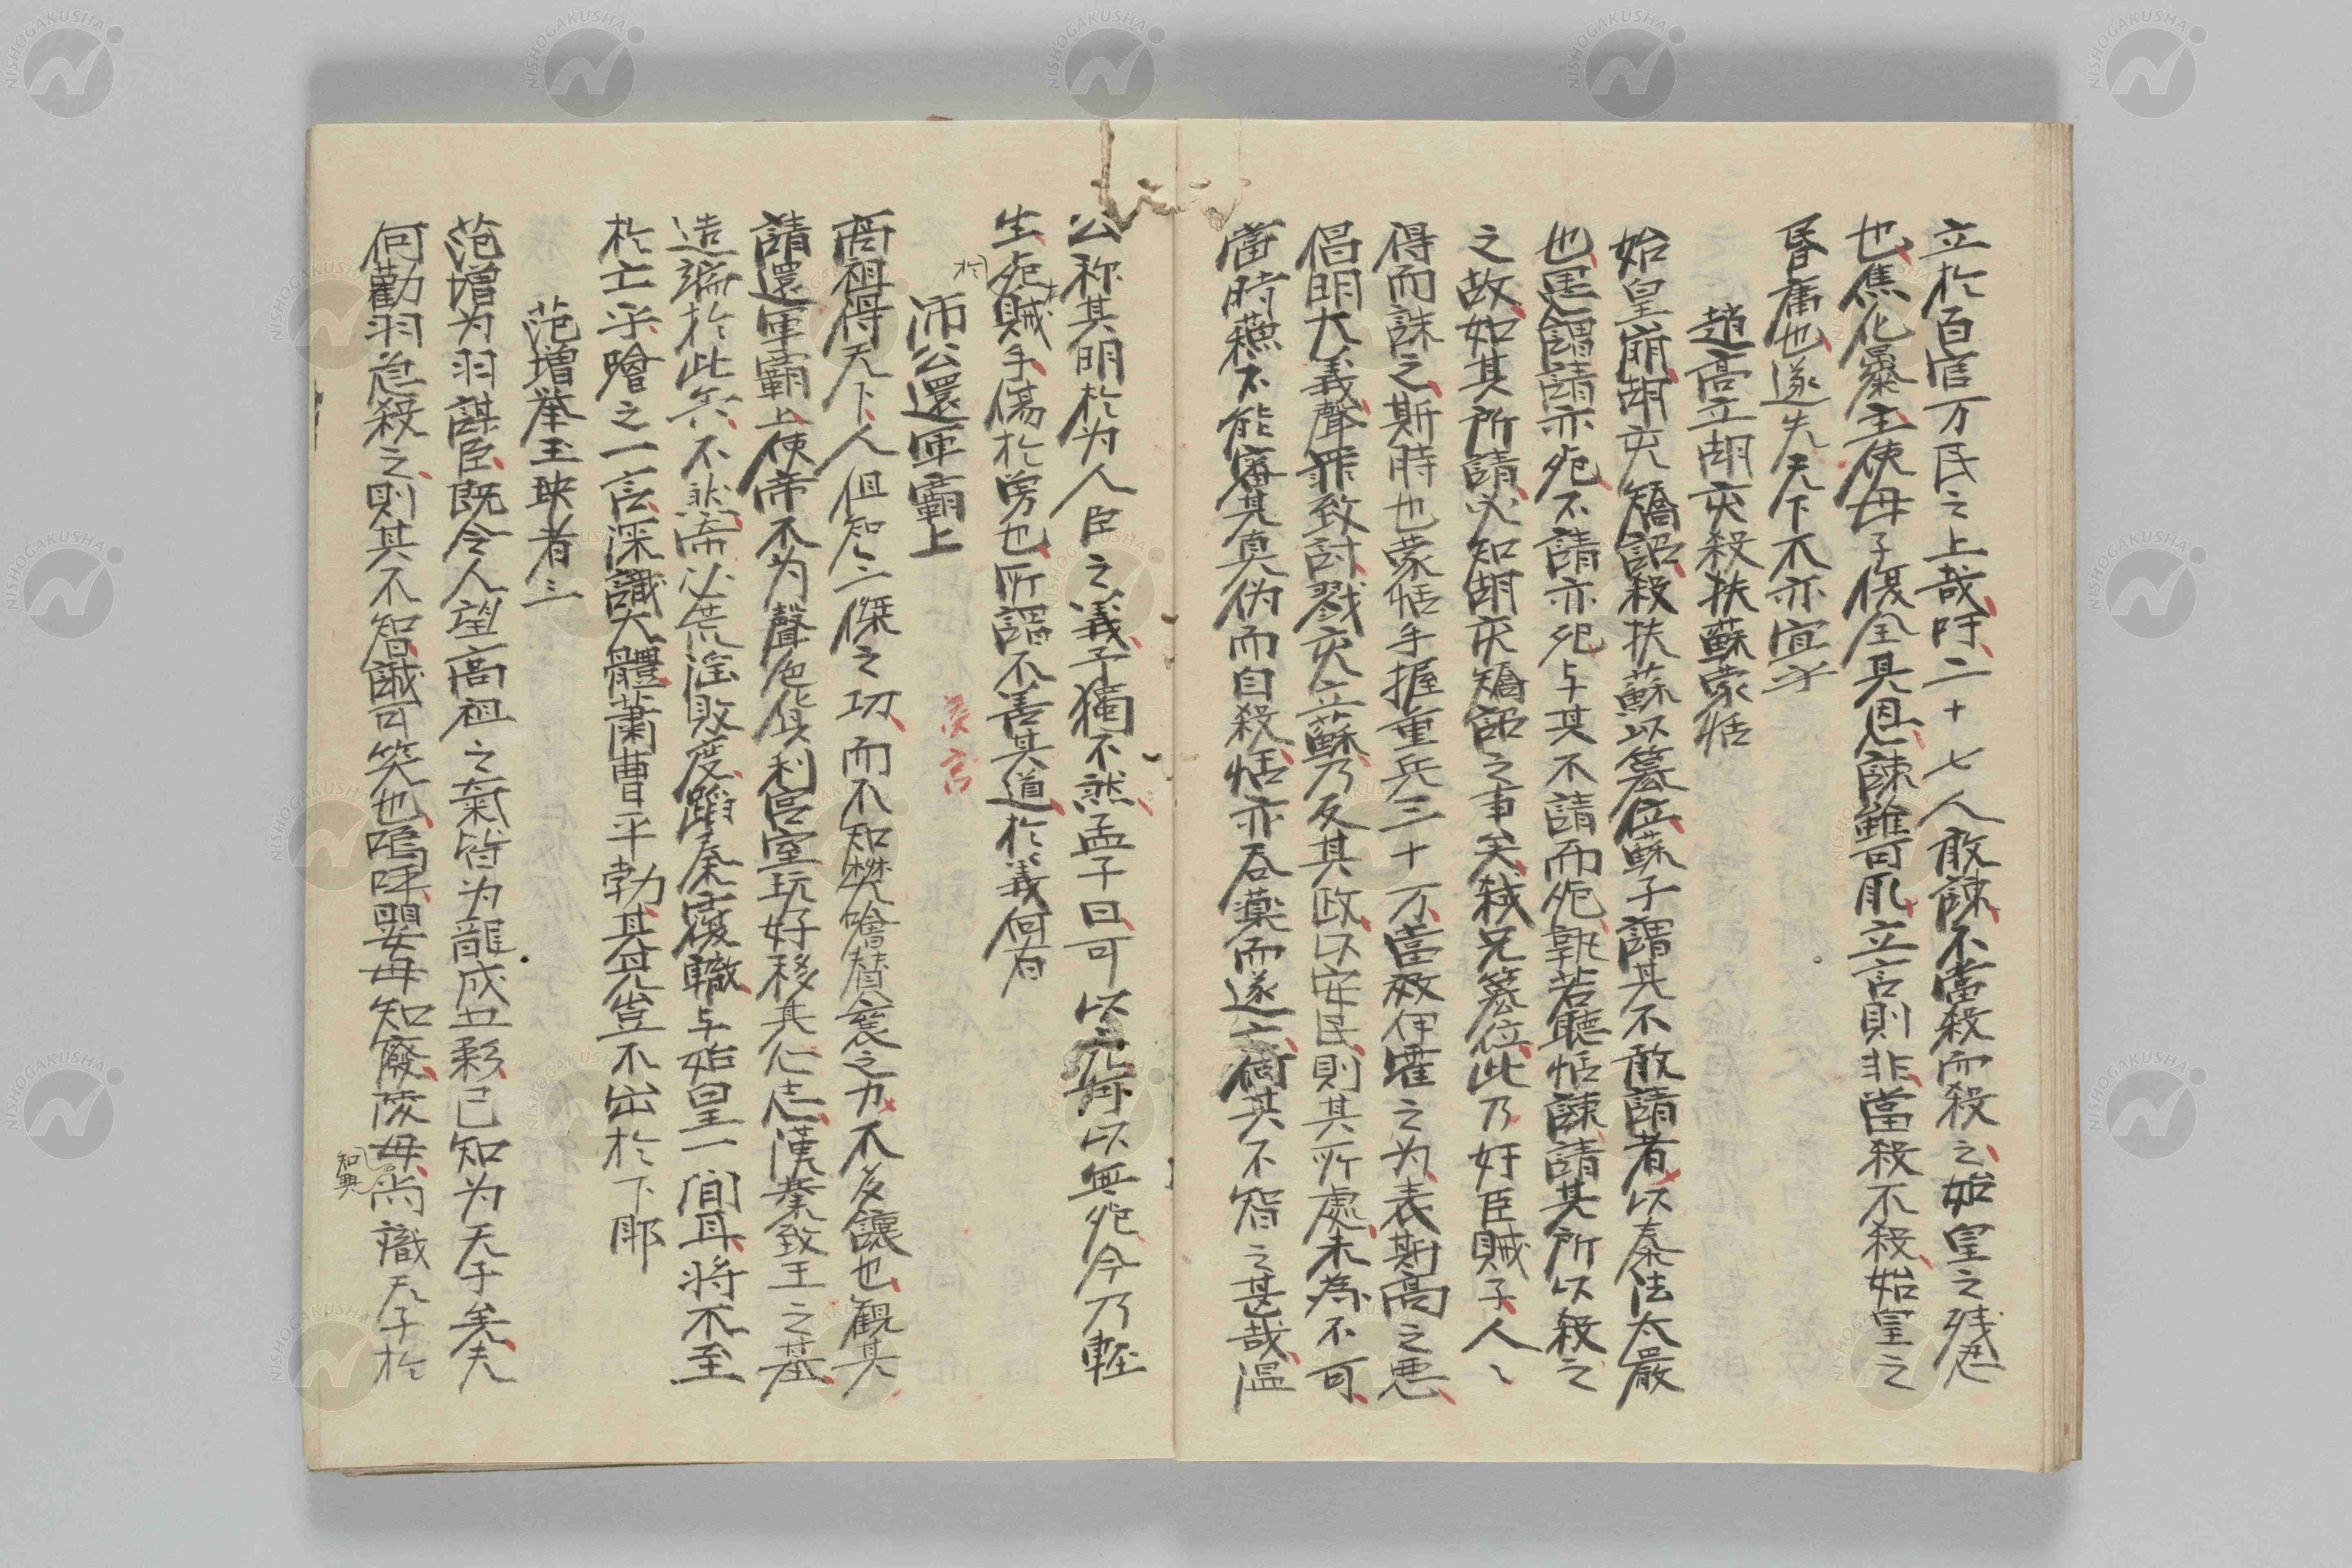 立於百官万民之上哉吁二十七人敢諫不當殺而殺之始皇之残忍
也焦化暴主使母子復全其恩諫雖可爪立言則非當殺不殺始皇之
昏庸也遂失天下不亦宜乎
趙高立胡亥殺扶蘇蒙恬
始皇崩胡亥矯詔殺扶蘇以簒位蘇子謂其不敢請者以秦法太嚴
也愚謂請亦死不請亦死与其不請而死孰若聽恬諫請其所以殺之
之故如其所請必知胡亥矯詔之事矣弑兄簒位此乃奸臣賊子人〻
得而誅之斯時也蒙恬手握重兵三十万當效伊霍之为表斯高之悪
倡明大義聲罪致討戮亥立蘇乃反其政以安民則其所處未為不可
當時蘓不能審其真伪而自殺恬亦吞藥而遂亡何其不智之甚哉温
公称其明於为人臣之義子獨不然孟子曰可以死可以無死今乃軽
生死賊手傷於勇也所謂不善其道於義何有
於
沛公還軍霸上
高祖得天下人但知三傑之功而不知樊噲賛襄之力不多讓也観其
請還軍霸上使帝不为聲色貨利宮室玩好移其心志漢業致王之基
造端於此矣不然帝必荒淫敗度蹈秦覆轍与始皇一間耳将不至
於亡乎噲之一言深識大體蕭曹平勃其見豈不出於下耶
范増挙玉玦者三
范増为羽謀臣既令人望高祖之氣皆为龍成五彩已知为天子矣夫
何勸羽急殺之則其不智誠可笑也嗚呼嬰母知廢陵母尚識天子於
知興